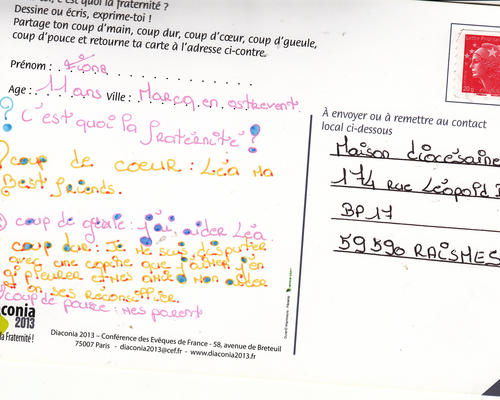 c'est quoi la fraternité ?
Dessine ou écris, exprime-toi !
Partage ton coup d'main, coup dur, coup d'cœur, coup d'gueule,
coup d'pouce et retourne ta carte à l'adresse ci-contre.
Prénom : Fiona
Age : 11 ans Ville : Marcq en ostrevent
? C'est quoi la fraternité !
coup de coeur : Léa ma
Best friends.
coup de geule : j'ai aider Léa.
coup dur : Je me suis disputer
avec une copine que j'aimer j'en
ai pleurer et mes amie mon aider
et on ses reconscillier.
coup de pouce : mes parent
À envoyer ou à remettre au contact
local ci-dessous
Maison diocésaine
174 rue Léopold
BP 17
59590 RAISMES
Lettre Prioritaire
20g
conia
2013
la Fraternité !
Diaconia 2013 – Conférence des Evêques de France - 58, avenue de Breteuil
75007 Paris - diaconia2013@cef.fr - www.diaconia2013.fr